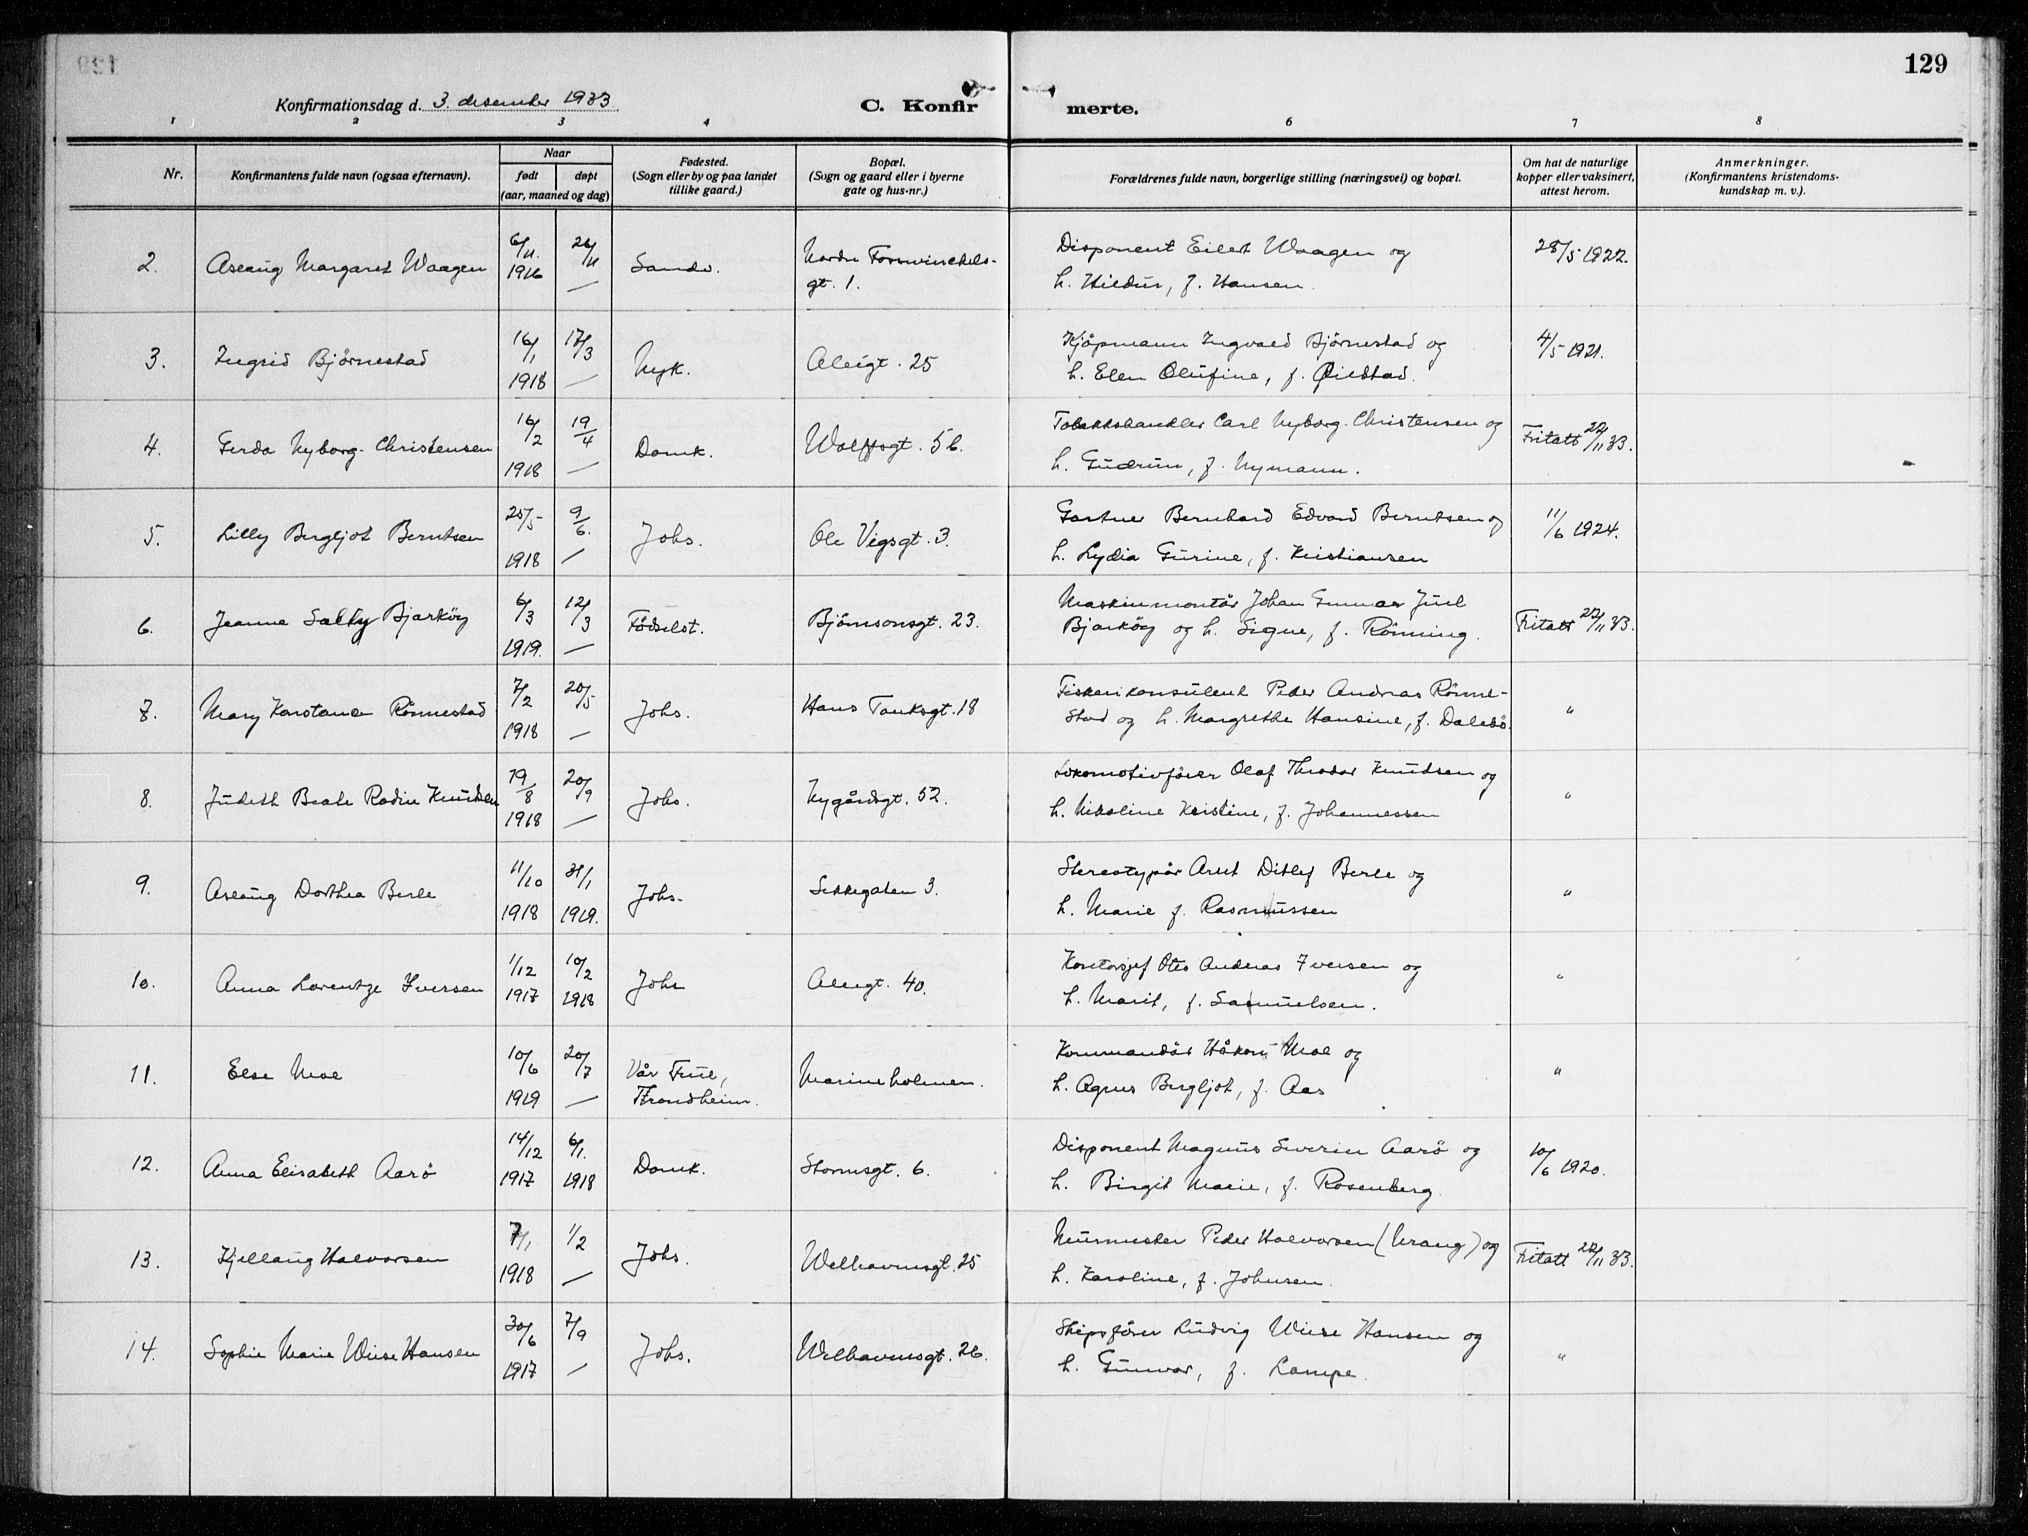 129
Konfirmationsdag d. 3. desember 1933
C. Konfir merte.
1 2 3 4 6 7 8
Nr.
Konfirmantens fulde navn (ogsaa efternavn).
Naar
født døpt
(aar, maaned og dag)
Fødested.
(Sogn eller by og paa landet
tillike gaard.)
Bopæl.
(Sogn og gaard eller i byerne
gate og hus-nr.)
Forældrenes fulde navn, borgerlige stilling (næringsvei) og bopæl.
Om hat de naturlige
kopper eller vaksinert,
attest herom.
Anmerkninger.
(Konfirmantens kristendoms-
kundskap m. v.).
2. Aslaug Margaret Waagen 6/11. 1916 26/11 — Sandv. Nordre Forswinckels-
gt. 1.
Disponent Eilert Waagen og
h. Hildur, f. Hansen.
28/5 1922.
3. Ingrid Bjørnestad 16/1 1918 17/3 — Nyk. Allégt. 25
Kjøpmann Ingvald Bjørnestad og
h. Elen Olufine, f. Øilstad.
4/5 1921.
4. Gerda Nyborg-Christensen 16/2 1918 19/4 — Domk. Wolffsgt. 5b.
Tobakkshandler Carl Nyborg-Christensen og
h. Gudrun, f. Nymann.
Fritatt 22/11 33.
5. Lilly Bergljot Berntsen 25/5 1918 9/6. — Johs. Ole Vigsgt. 3.
Gartner Bernhard Edvard Berntsen og
h. Lydia Gurine, f. Kristiansen
11/6 1924.
6. Jeanne Salty Bjarköy 6/3 1919. 12/3 — Födselst. Björnsonsgt. 23.
Maskinmontör Johan Gunnar Juul
Bjarköy og h. Signe, f. Rönning.
Fritatt 22/11 33.
7. Mary Konstance Rönnestad 7/2 1918 20/5 — Johs. Hans Tanksgt. 18
Fiskerikonsulent Peder Andreas Rönne-
stad og h. Margrethe Hansine, f. Dalebö.
"
8. Judith Beate Rodin Knudsen 19/8 1918 20/9 — Johs. Nygårdsgt. 52.
Lokomotivförer Olaf Theodor Knudsen og
h. Nikoline Kristine, f. Johannessen
"
9. Aslaug Dorthea Berle 11/10 1918 31/1 1919. Johs. Sekkegaten 3.
Stereotypör Arnt Ditlef Berle og
h. Marie f. Rasmussen
"
10. Anna Lorentze Iversen 1/12 1917 10/2 1918 Johs Allégt. 40.
Kontorsjef Otto Andreas Iversen og
h. Marit, f. Samuelsen.
"
11. Else Moe 10/6 1919 20/7 — Vår Frue,
Trondheim. Marineholmen.
Kommandör Håkon Moe og
h. Agnes Bergljot, f. Aas
"
12. Anna Elisabeth Aarö 14/12 1917 6/1. 1918 Domk. Stormsgt. 6.
Disponent Magnus Severin Aarö og
h. Birgit Marie, f. Rosenberg.
10/6 1920.
13. Kjellaug Halvorsen 7/1 1918 1/2 — Johs. Welhavensgt. 25
Murmester Peder Halvorsen (Vrang) og
h. Karoline, f. Johnsen.
Fritatt 22/11 33.
14. Sophie Marie Wiese Hansen 30/6 1917 7/9 — Johs. Welhavensgt. 26.
Skipsförer Ludvig Wiese Hansen og
h. Gunvor, f. Lampe.
"